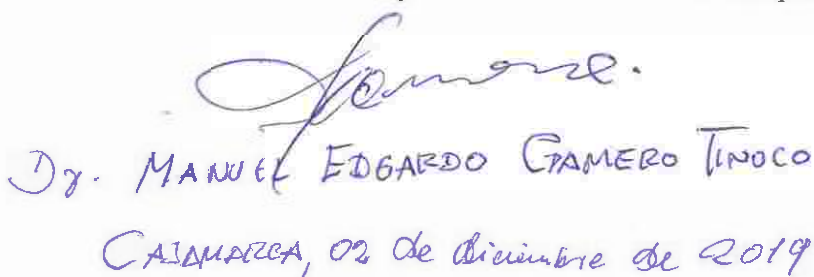 Dr. MANUEL EDGARDO GAMERO TINOCO
CAJAMARCA, 02 de diciembre de 2019